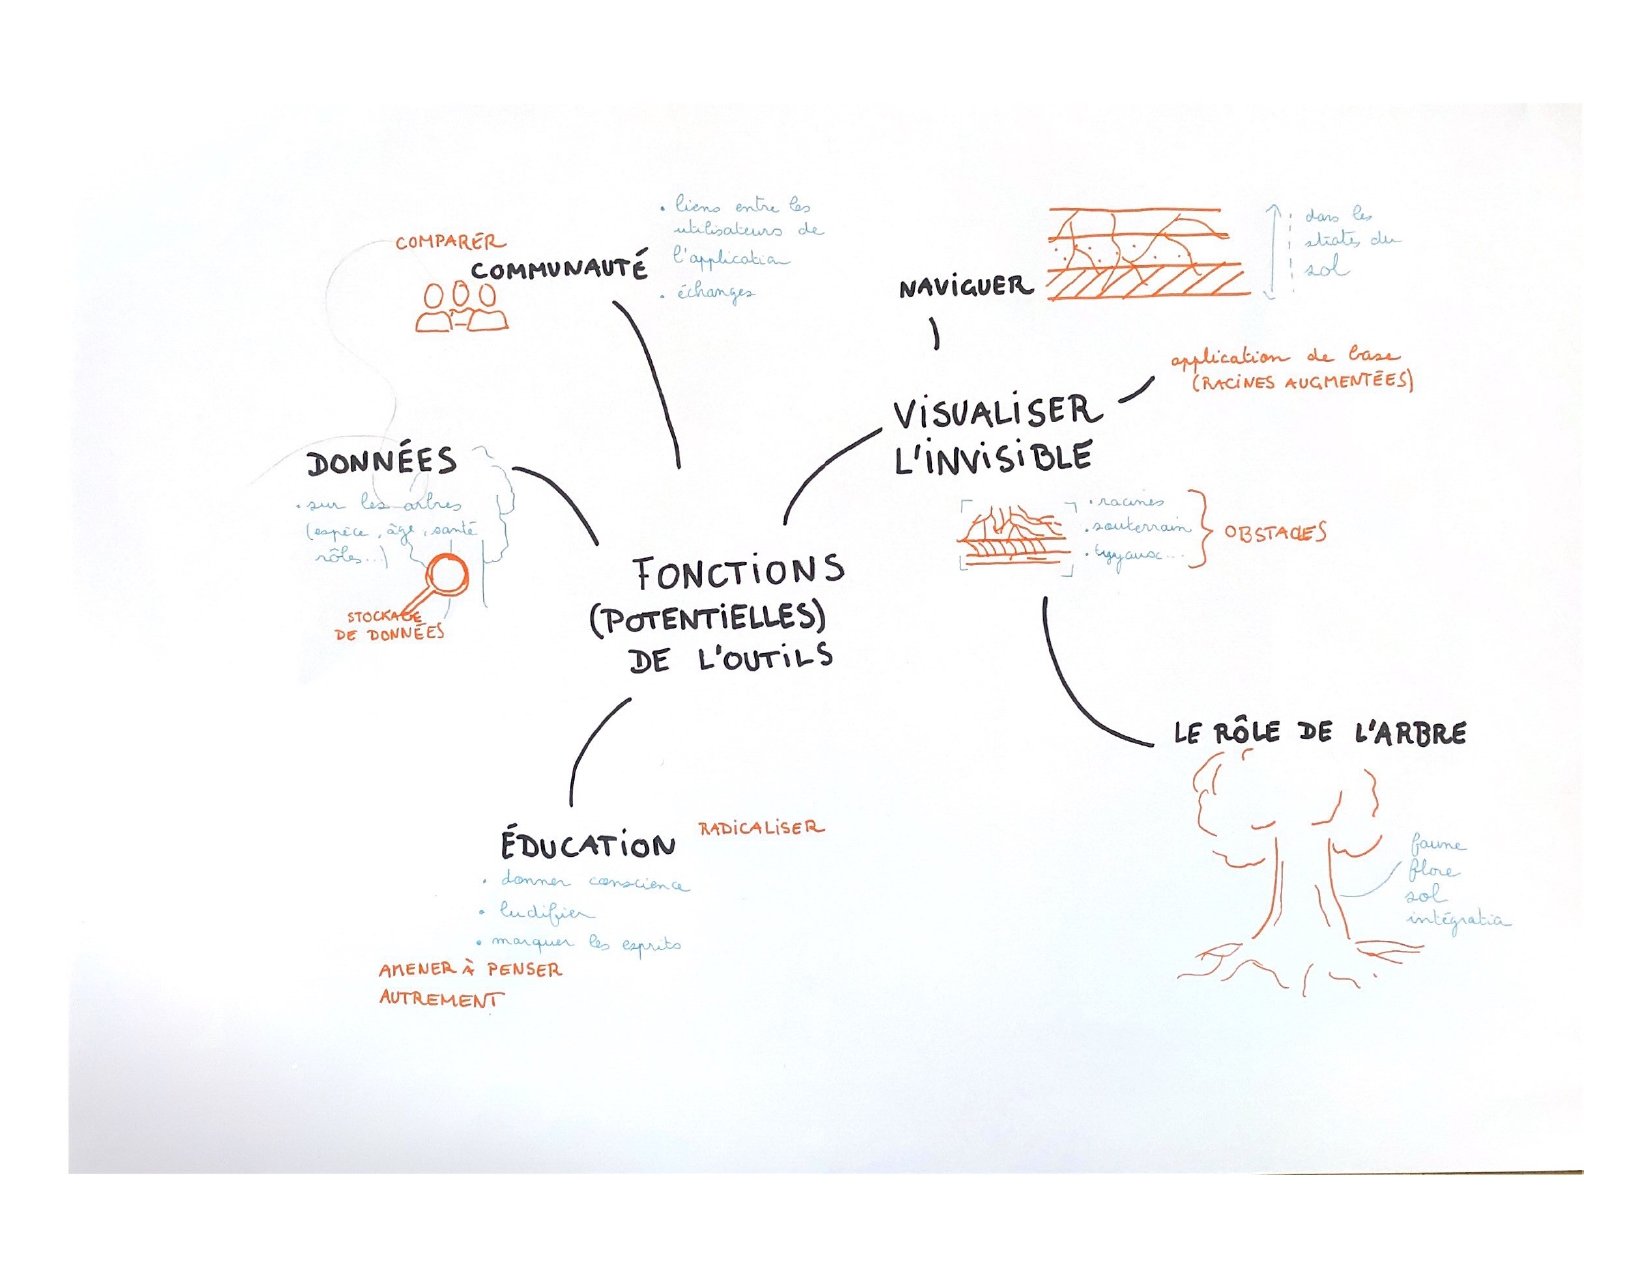 COMPARER
COMMUNAUTÉ
• liens entre les
utilisateurs de
l'application
• échanges
NAVIGUER
dans les
strates du
sol
application de base
(RACINES AUGMENTÉES)
VISUALISER
L'INVISIBLE
• racines
• souterrain
• tuyaux...
OBSTACLES
DONNÉES
• sur les arbres
(espèce, âge, santé
rôles...)
STOCKAGE
DE DONNÉES
FONCTIONS
(POTENTIELLES)
DE L'OUTILS
LE RÔLE DE L'ARBRE
faune
flore
sol
intégration
ÉDUCATION
RADICALISER
• donner conscience
• ludifier
• marquer les esprits
AMENER À PENSER
AUTREMENT